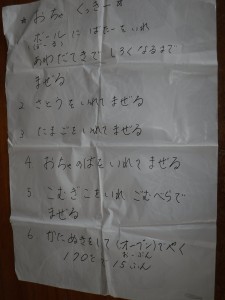 * おちゃ くっきー *
1 ボールに ばたーをいれ
ぼーる
あわだてきで しろくなるまで
まぜる
2. さとうをいれてまぜる
3 たまごをいれてまぜる
4 おちゃのはをいれて まぜる
5 こむぎこをいれ ごむべらで
まぜる
6 かたぬきをして(オーブン)でやく
おーぶん
170ど 15ふん